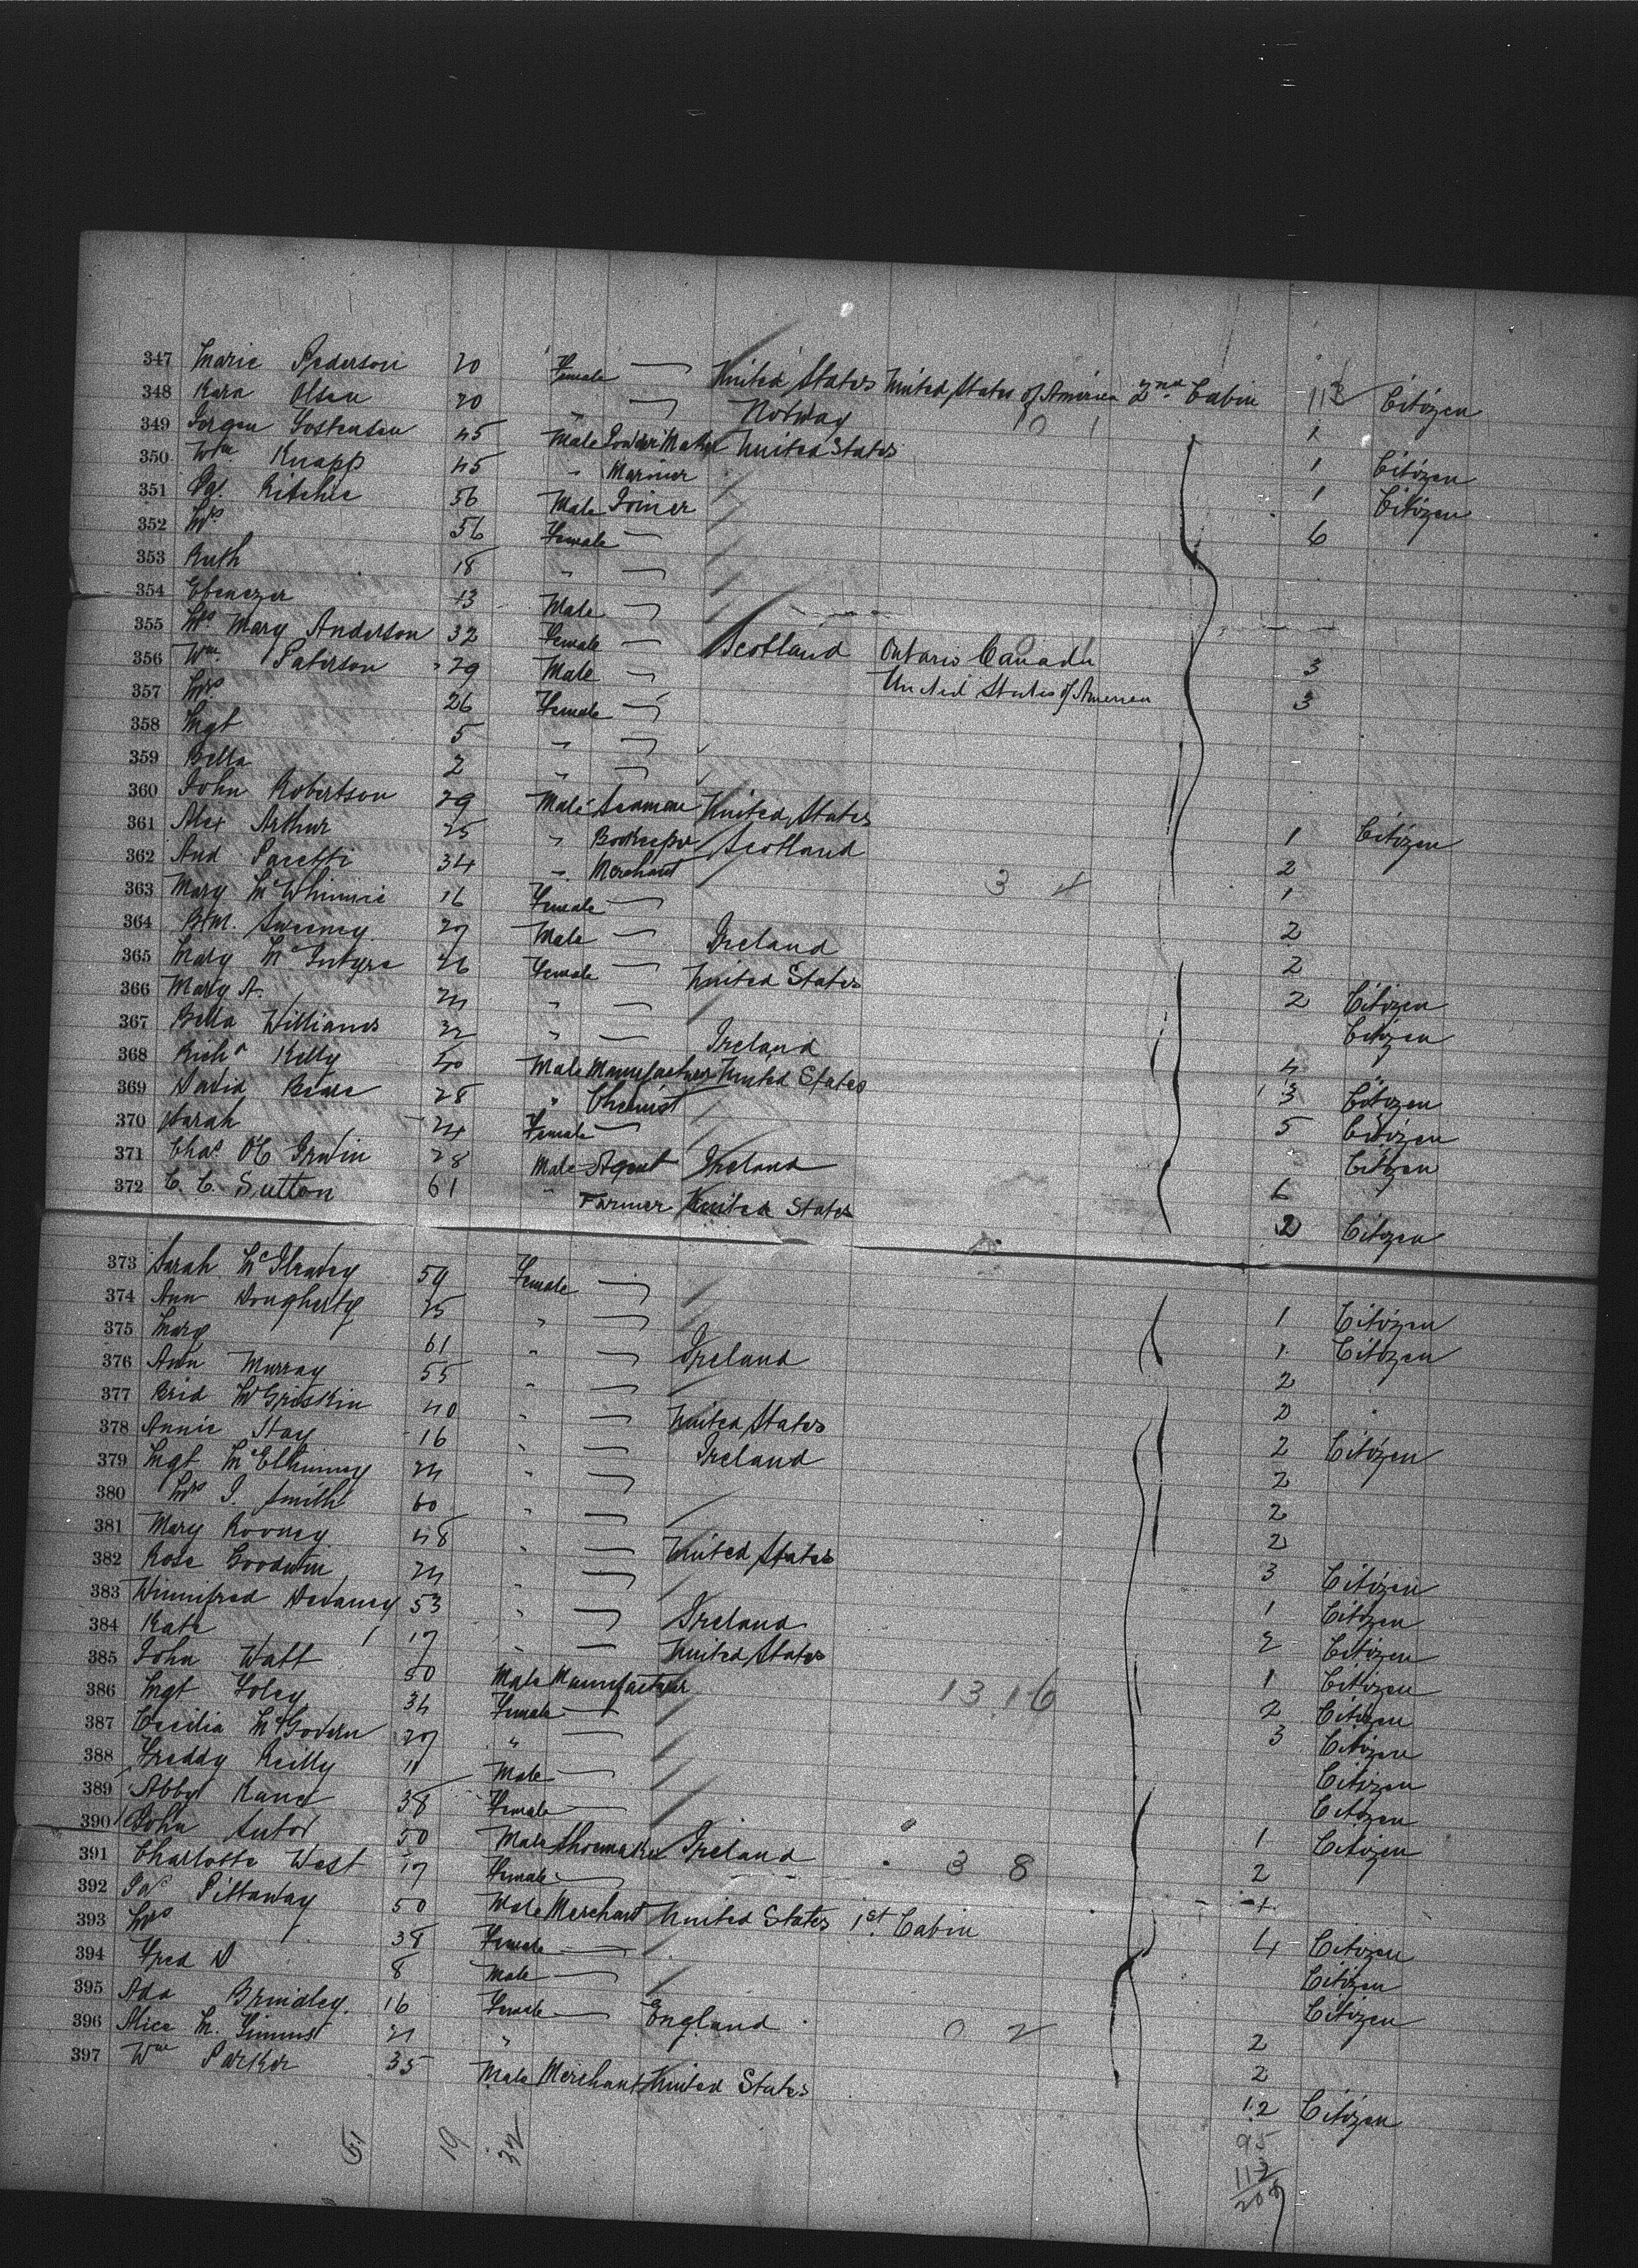 347 Marie Pederson 20 Female — United States United States of America 2nd Cabin 1 Citizen
348 Kara Olsen 20 " — Norway 1
349 Jorgen Tostensen 45 Male Powder Maker United States 1 Citizen
350 Wm Knapp 45 " Mariner 1 Citizen
351 Ritchie 56 Male Joiner 6
352 Mrs 56 Female —
353 Ruth 18 " —
354 Ebenezer 13 Male —
355 Mrs Mary Anderson 32 Female — Scotland Ontario Canada 3
356 Wm Paterson 29 Male — United States of America 3
357 Mrs 26 Female —
358 Mgt 5 " —
359 Bella 2 " —
360 John Robertson 29 Male Seaman United States 1 Citizen
361 Alex Arthur 25 " Bookeeper Scotland 2
362 And 34 " Merchant 3 4 1
363 Mary McWhinnie 16 Female — 2
364 Sweeney 27 Male — Ireland 2
365 Mary McIntyre 46 Female — United States 2 Citizen
366 Mary A. 24 " — Citizen
367 Bella Williams 32 " — Ireland 4
368 Richd Kelly 50 Male Manufacturer United States 3 Citizen
369 David 28 " Chemist 5 Citizen
370 Sarah 24 Female — Citizen
371 Chas O'C Irwin 28 Male Agent Ireland 6
372 C. C. Sutton 61 " Farmer United States 2 Citizen
373 Sarah 59 Female — 1 Citizen
374 Ann Dougherty 25 " — 1 Citizen
375 Mary 61 " — Ireland 2
376 Ann Murray 55 " — 2
377 Brid McGriskin 40 " — United States 2 Citizen
378 Annie Hay 16 " — Ireland 2
379 Mgt McElhinney 24 " — 2
380 Mrs J. Smith 60 " — 2
381 Mary Rooney 48 " — United States 3 Citizen
382 Rose Goodwin 24 " — 1 Citizen
383 Winnifred Devaney 53 " — Ireland 2 Citizen
384 Kate 17 " — United States 1 Citizen
385 John Watt 50 Male Manufacturer 13 16 2 Citizen
386 Mgt Foley 34 Female — 3 Citizen
387 Cecilia McGovern 27 " — Citizen
388 Freddy Reilly 11 Male — Citizen
389 Abby Kane 38 Female — 1 Citizen
390 John Sutor 50 Male Shoemaker Ireland 2
391 Charlotte West 17 Female — 3 8
392 Pittaway 50 Male Merchant United States 1st Cabin 4 Citizen
393 Mrs 38 Female — Citizen
394 Fred D 8 Male — Citizen
395 Ada Brindley 16 Female — England 0 2 2
396 Alice M. Timms 21 " 2
397 Wm Parker 35 Male Merchant United States 12 Citizen
61 19 32
95
112